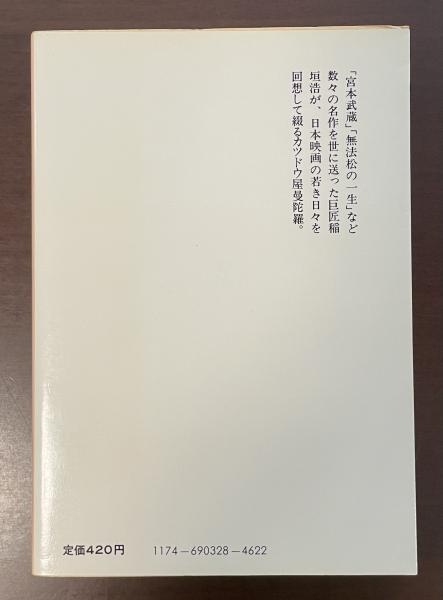 「宮本武蔵」「無法松の一生」など
数々の名作を世に送った巨匠稲
垣浩が、日本映画の若き日々を
回想して綴るカツドウ屋曼陀羅。
定価420円
1174－690328－4622